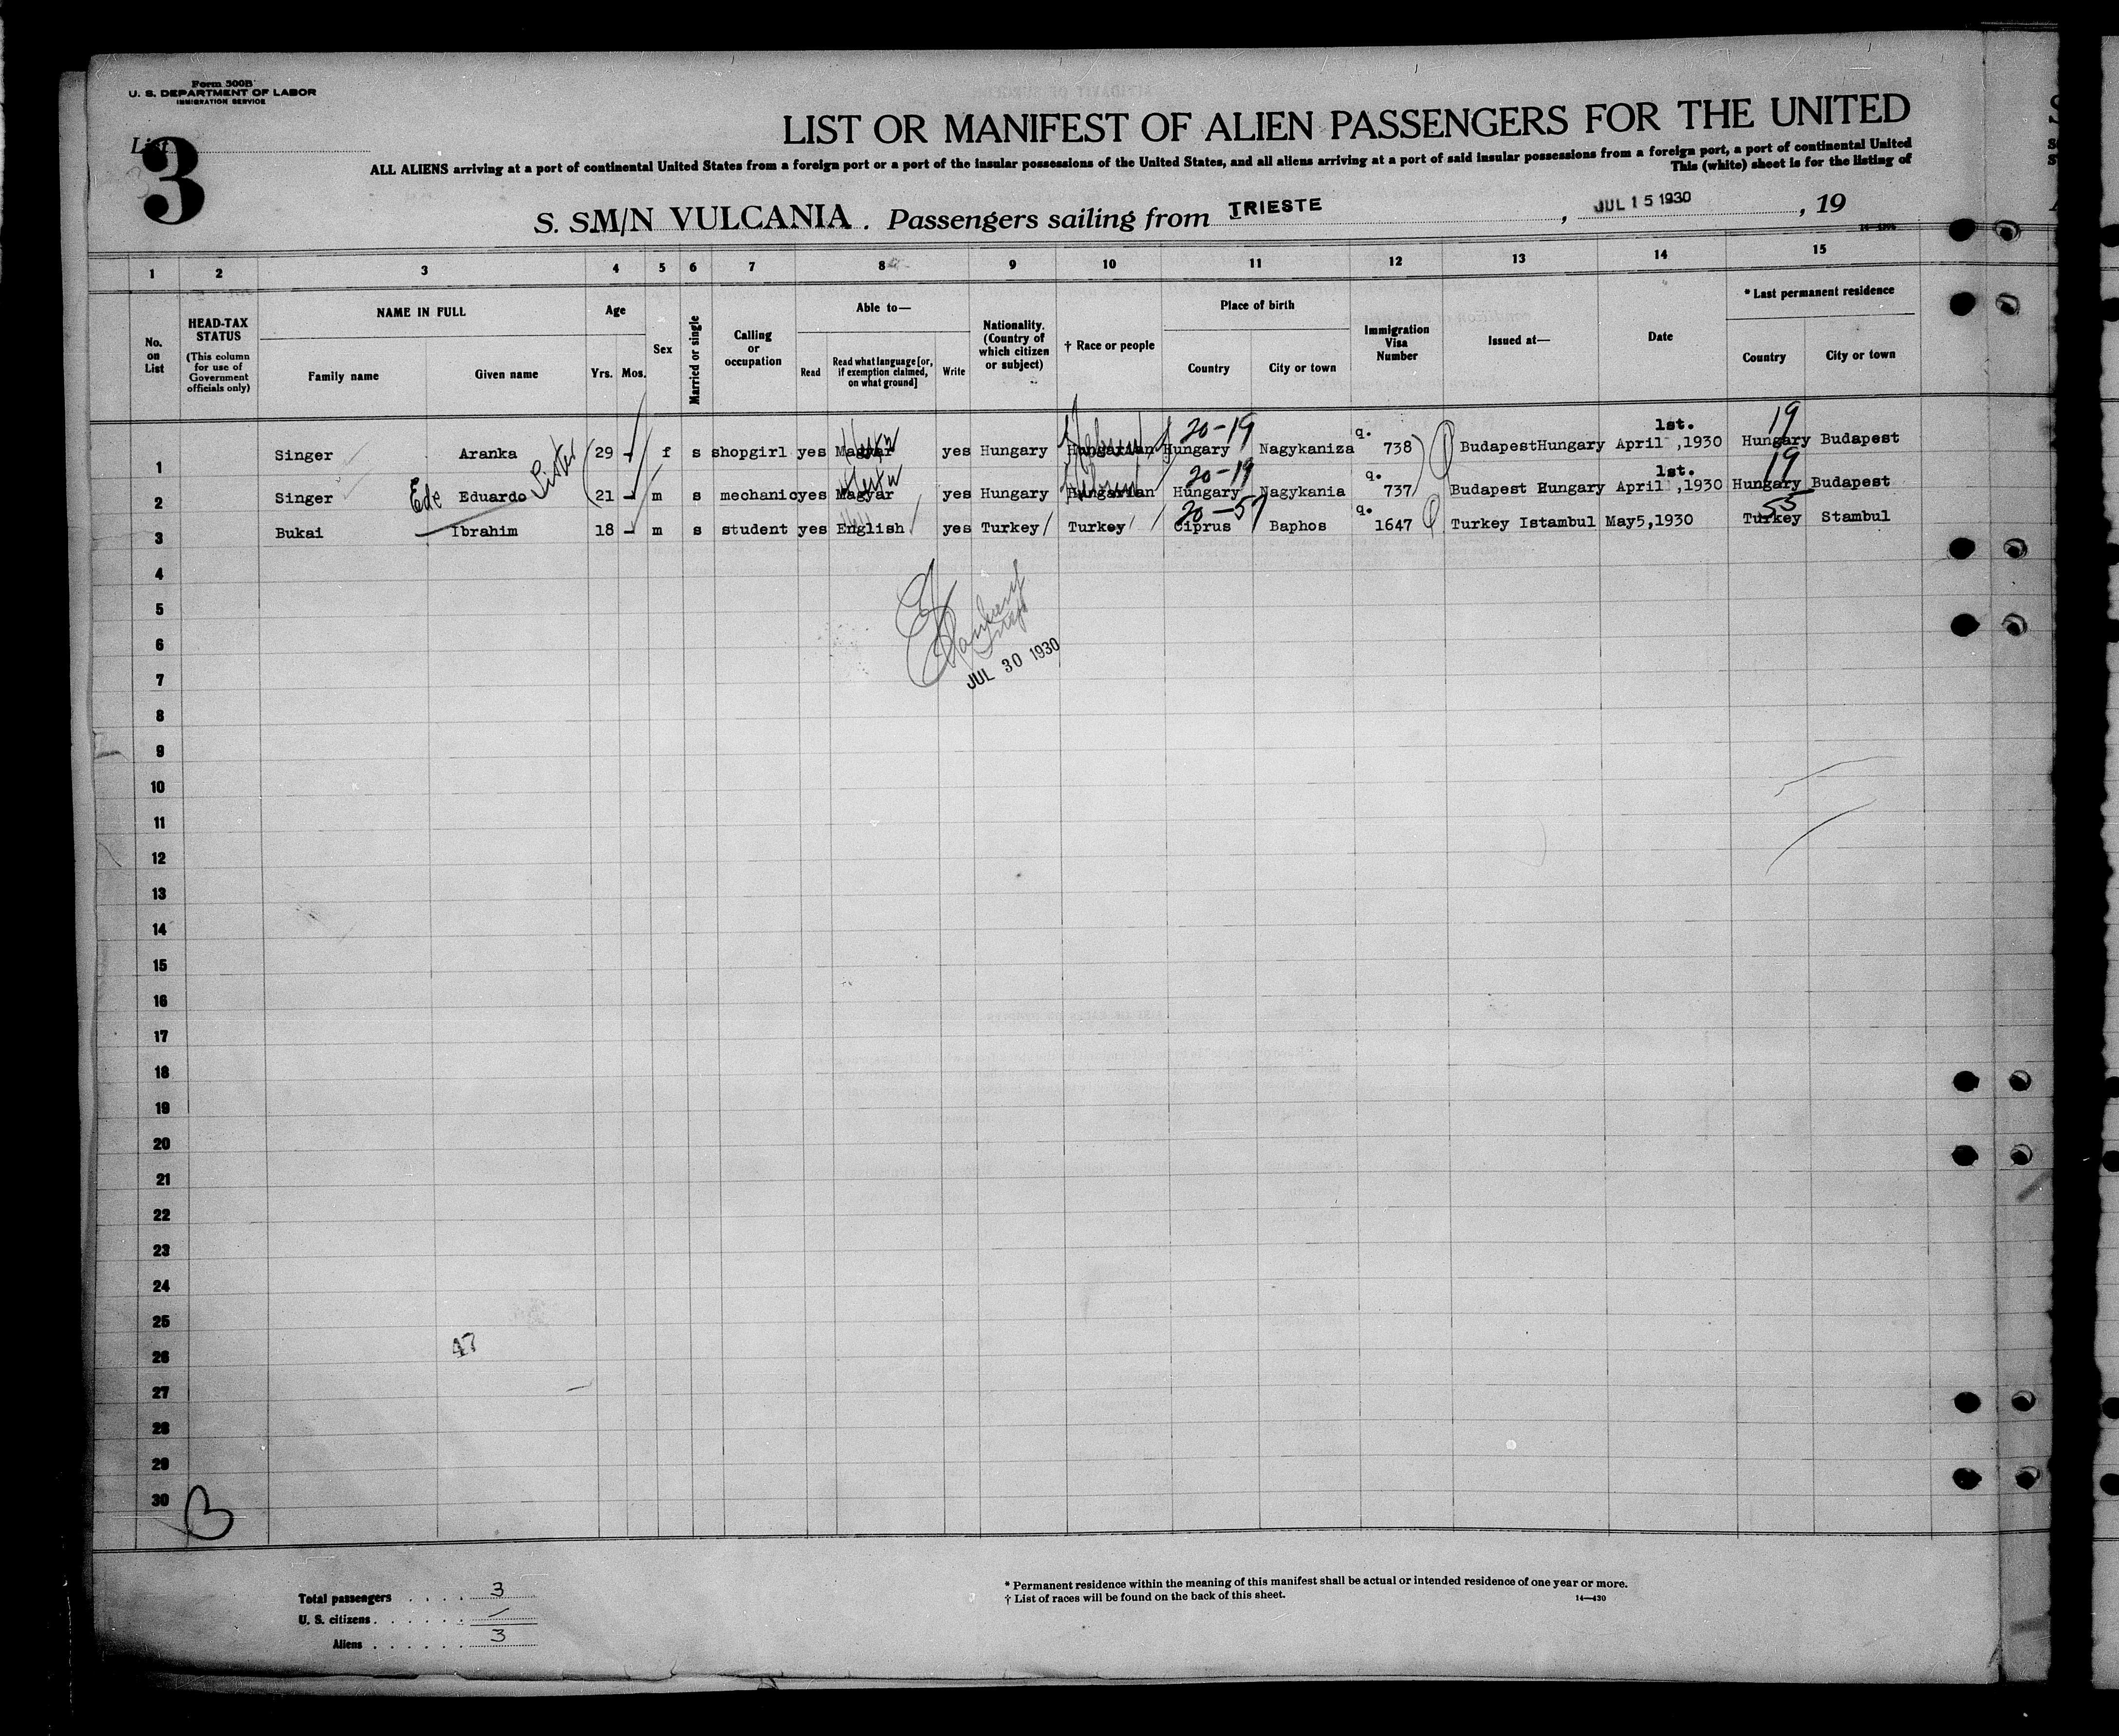 Form 500B
U. S. DEPARTMENT OF LABOR
IMMIGRATION SERVICE
List
3
LIST OR MANIFEST OF ALIEN PASSENGERS FOR THE UNITED
ALL ALIENS arriving at a port of continental United States from a foreign port or a port of the insular possessions of the United States, and all aliens arriving at a port of said insular possessions from a foreign port, a port of continental United
This (white) sheet is for the listing of
S. S. M/N VULCANIA. Passengers sailing from TRIESTE, JUL 15 1930, 19
1 2 3 4 5 6 7 8 9 10 11 12 13 14 15
No. on List
HEAD-TAX STATUS (This column for use of Government officials only)
NAME IN FULL
Family name Given name
Age
Yrs. Mos.
Sex
Married or single
Calling or occupation
Able to—
Read Read what language [or, if exemption claimed, on what ground] Write
Nationality. (Country of which citizen or subject)
† Race or people
Place of birth
Country City or town
Immigration Visa Number
Issued at—
Date
* Last permanent residence
Country City or town
20-19 q. 1st. 19
1 Singer Aranka 29 - f s shopgirl yes Magyar yes Hungary Hungarian Hebrew Hungary Nagykaniza 738 BudapestHungary April ,1930 Hungary Budapest
Sister 20-19 q. 1st. 19
2 Singer Ede Eduardo 21 - m s mechanic yes Magyar yes Hungary Hungarian Hebrew Hungary Nagykania 737 Budapest Hungary April ,1930 Hungary Budapest
20-57 q. 55
3 Bukai Ibrahim 18 - m s student yes English yes Turkey Turkey Ciprus Baphos 1647 Turkey Istambul May5,1930 Turkey Stambul
4
5
6
7
JUL 30 1930
8
9
10
11
12
13
14
15
16
17
18
19
20
21
22
23
24
25
26
47
27
28
29
30
B
Total passengers . . . . 3
U. S. citizens . . . . . . —
Aliens . . . . . . 3
* Permanent residence within the meaning of this manifest shall be actual or intended residence of one year or more.
† List of races will be found on the back of this sheet.
14—430